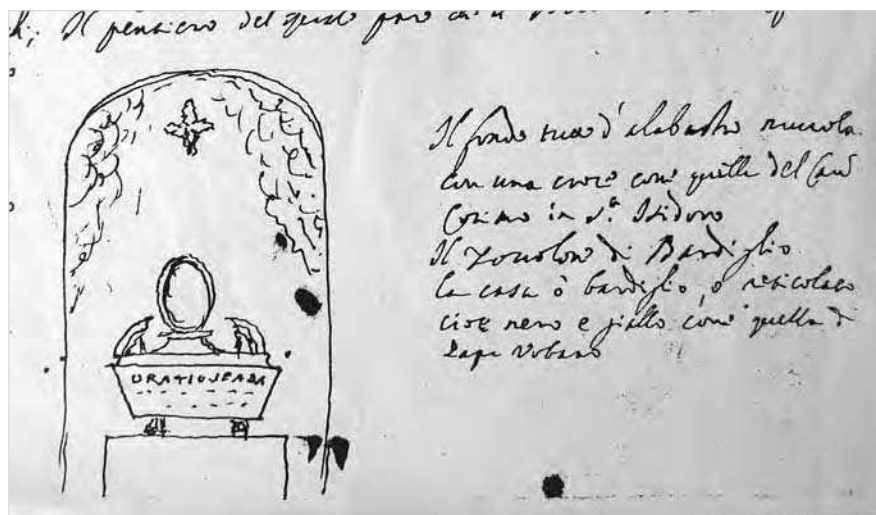 Il pensiero del
Il fondo tutto d'alabastro nuvola
con una croce come quella del Cav.
Cosimo in S.ª Isidoro
Il zoccolo di Bardiglio
la cassa ò bardiglio, o reticolato
cioè nero e giallo come quella di
Papa Urbano